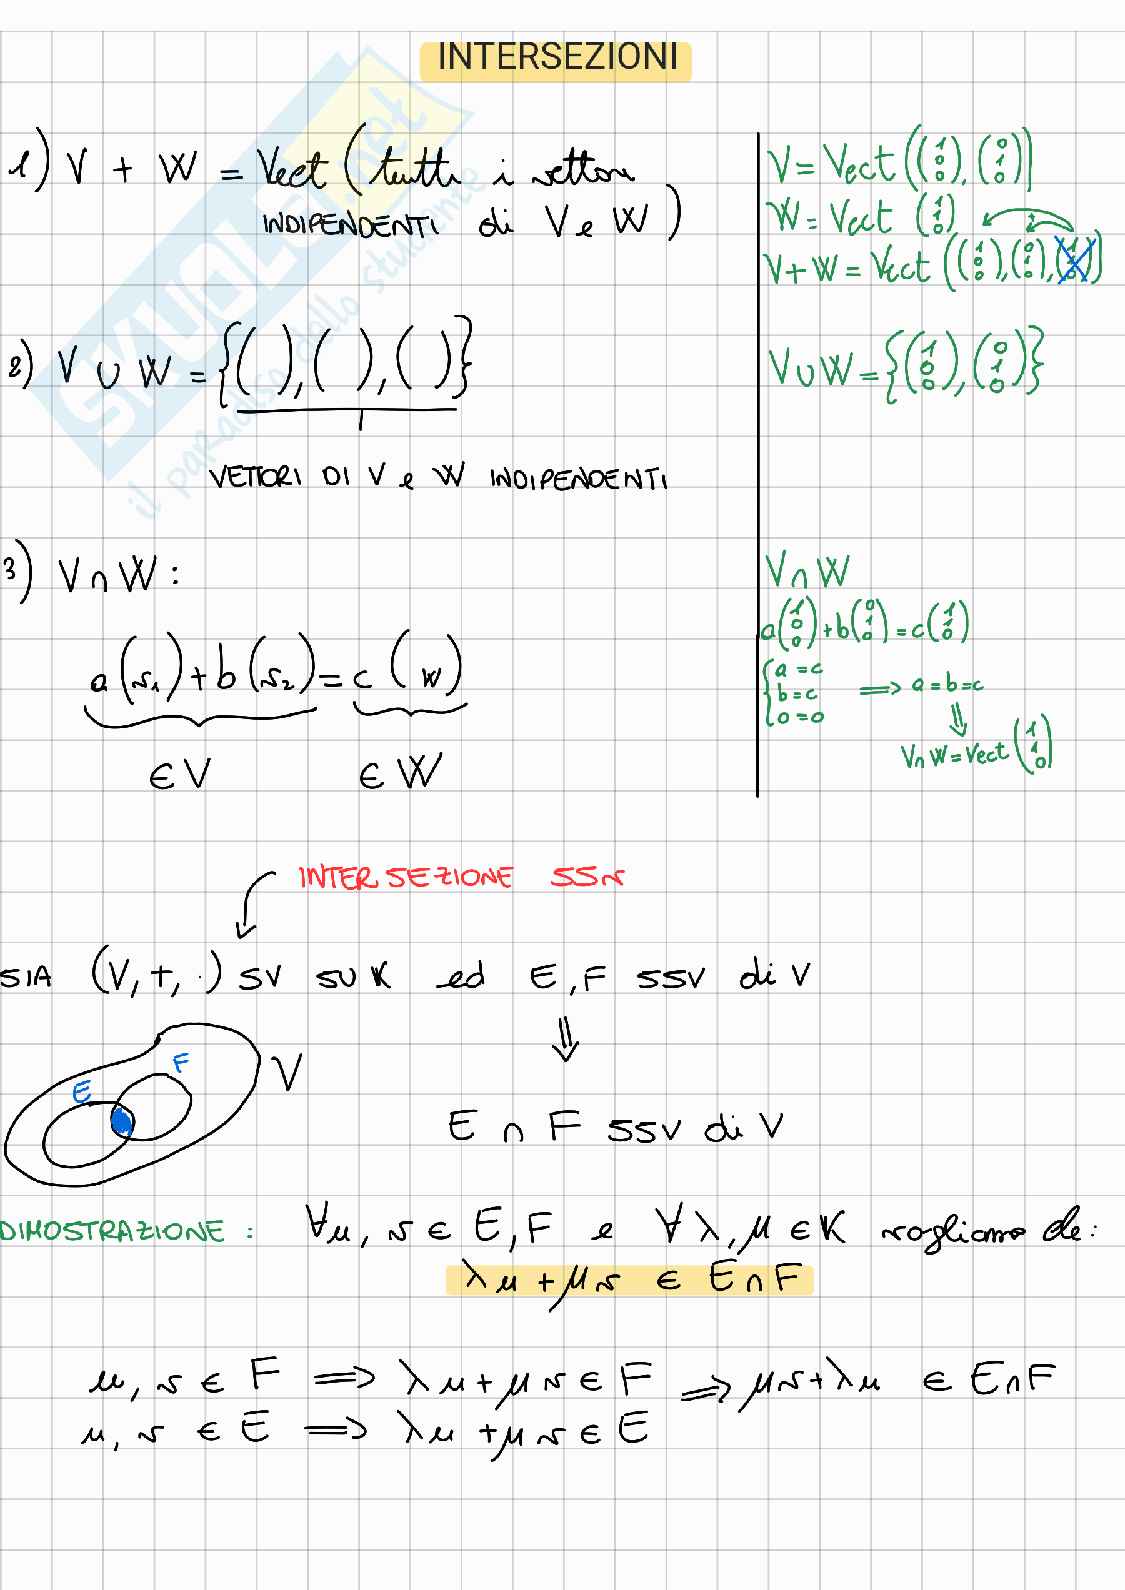 INTERSEZIONI
1) V + W = Vect (tutti i vettori
INDIPENDENTI di V e W)
2) V ∪ W = {( ), ( ), ( )}
VETTORI DI V e W INDIPENDENTI
3) V ∩ W :
a (v₁) + b (v₂) = c (w)
∈ V ∈ W
V = Vect ((1 0 0), (0 1 0))
W = Vect (1 1 0)
V + W = Vect ((1 0 0), (0 1 0), (1 1 0))
V ∪ W = {(1 0 0), (0 1 0)}
V ∩ W
a (1 0 0) + b (0 1 0) = c (1 1 0)
{ a = c
b = c ⟹ a = b = c
0 = 0 ⇓
V ∩ W = Vect (1 1 0)
INTERSEZIONE SSV
SIA (V, +, ·) SV SU K ed E, F SSV di V
⇓
E F V
E ∩ F SSV di V
DIMOSTRAZIONE : ∀ u, v ∈ E, F e ∀ λ, μ ∈ K vogliamo che:
λu + μv ∈ E ∩ F
u, v ∈ F ⟹ λu + μv ∈ F ⟹ μv + λu ∈ E ∩ F
u, v ∈ E ⟹ λu + μv ∈ E
SKUOLA.net
il paradiso dello studente